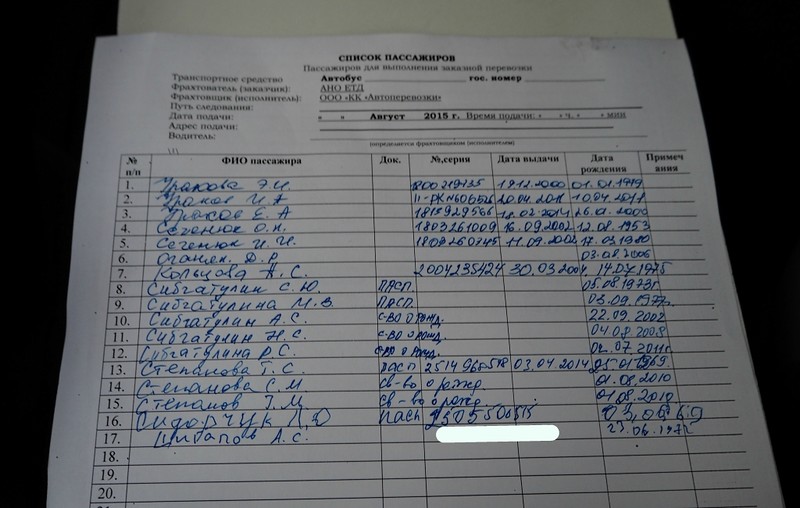 СПИСОК ПАССАЖИРОВ
Пассажиров для выполнения заказной перевозки
Транспортное средство Автобус гос. номер
Фрахтователь (заказчик): АНО ЕТД
Фрахтовщик (исполнитель): ООО «КК «Автоперевозки»
Путь следования:
Дата подачи: « » Август 2015 г. Время подачи: « » ч. « » мин
Адрес подачи:
Водитель:
(определяется фрахтовщиком (исполнителем)
№ п/п ФИО пассажира Док. №,серия Дата выдачи Дата рождения Примечания
1. Э.И. 19.12.2000
2. 20.04.2011 10.04.2011
3. Е.А 1815929566 18.02.2014 26.01.2000
4. Сегенюк О.Н. 1803261009 16.09.2002 12.08.1953
5. Сегенюк И.И. 11.09.2002 17.03.1980
6. Оганян Д.Р. 03.08.2006
7. Кольцова А.С. 2004235424 30.03.2004 14.07.1975
8. Сибгатулин С.Ю. ПАСП.
9. Сибгатулина М.В. ПАСП. 03.09.1977
10. Сибгатулин А.С. С-ВО О РОЖД. 22.09.2002
11. Сибгатулин Н.С. С-ВО О РОЖД. 04.08.2008
12. Сибгатулина Р.С. С-ВО О РОЖД. 2011
13. Степанова Т.С. ПАСП 2514 03.04.2014
14. Степанова С.М св-во о рожд 01.08.2010
15. Степанов Т.М св-во о рожд 01.08.2010
16. Сидорчук Л.Ю пасп
17. А.С. 23.06.1972
18.
19.
20.